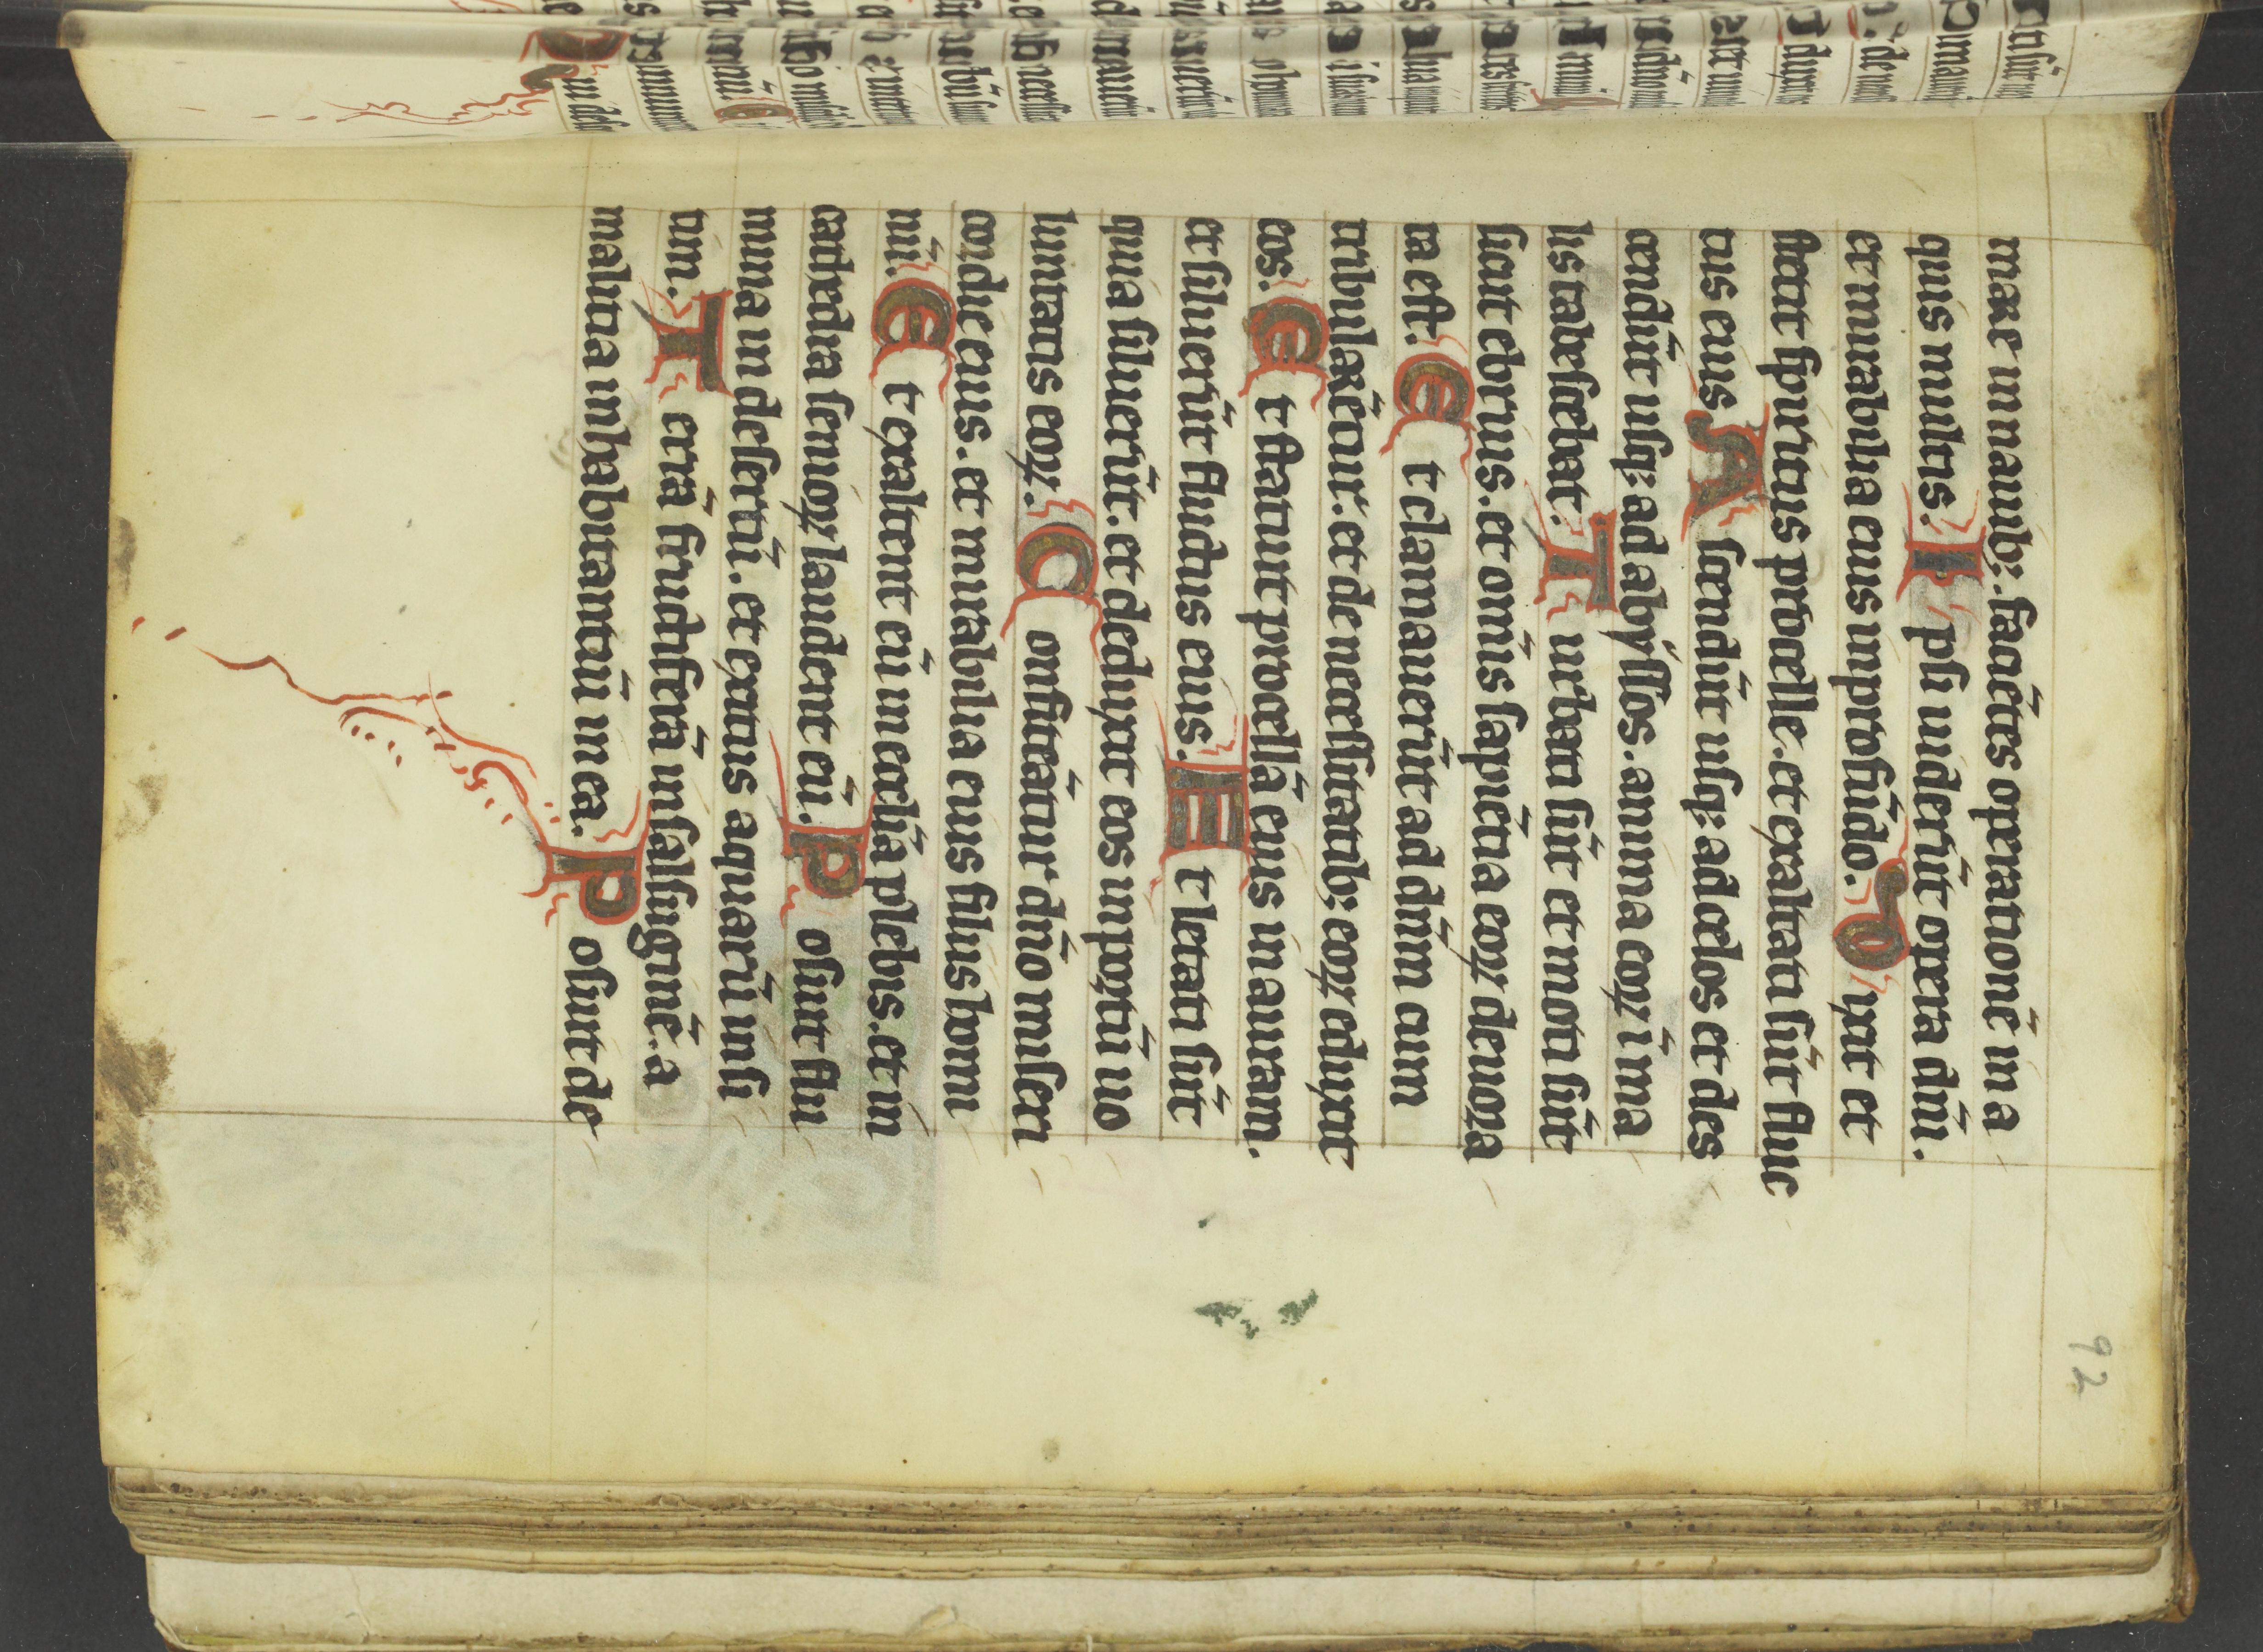 mare in nauibꝫ. faciētes operationē in a
quis multis. I psi uiderūt opera dn̄i.
et mirabilia eius in profūdo. D ixit et
stetit spiritus procelle. et exaltati sūt fluc
tus eius A scendūt usqꝫ ad celos et des
cendūt usqꝫ ad abyssos. anima eoꝝ ī ma
lis tabescebat. T urbati sūt et moti sūt
sicut ebrius. et om̄is sapiētia eoꝝ deuora
ta est. E t clamauerūt ad dn̄m cum
tribularētur. et de necessitatibꝫ eoꝝ eduxit
eos. E t statuit procellā eius in auram.
et siluerūt fluctus eius. E t letati sūt
quia siluerūt. et deduxit eos in portū uo
luntatis eoꝝ. C onfiteātur dn̄o miseri
cordie eius. et mirabilia eius filiis homi
nū. E t exaltent eū in ecclīa plebis. et in
cathedra senioꝝ laudent eū. P osuit flu
mina in desertū. et exitus aquarū in si
tim. T errā fructiferā in salsuginē. a
malitia inhabitantiū in ea. P osuit de
92